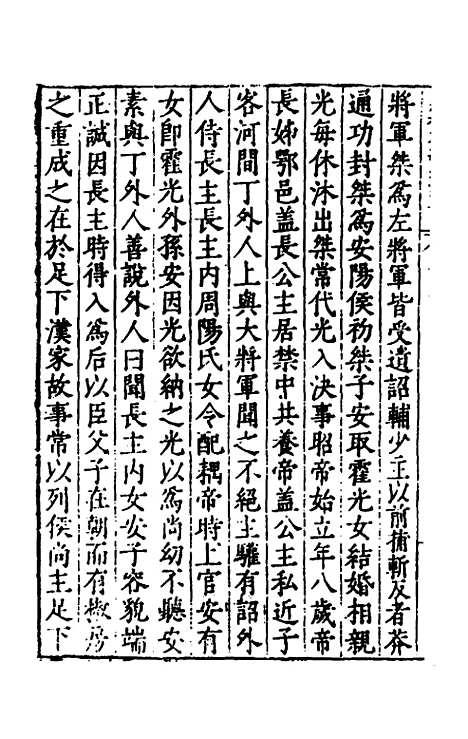 將軍桀爲左將軍皆受遺詔輔少主以前捕斬反者莽
通功封桀爲安陽侯初桀子安取霍光女結婚相親
光每休沐出桀常代光入決事昭帝始立年八歲帝
長姊鄂邑盖長公主居禁中共養帝盖公主私近子
客河間丁外人上與大將軍聞之不絕主驩有詔外
人侍長主長主內周陽氏女令配耦帝時上官安有
女即霍光外孫安因光欲納之光以爲尚幼不聽安
素與丁外人善說外人曰聞長主內女安子容貌端
正誠因長主時得入爲后以臣父子在朝而有椒房
之重成之在於足下漢家故事常以列侯尚主足下